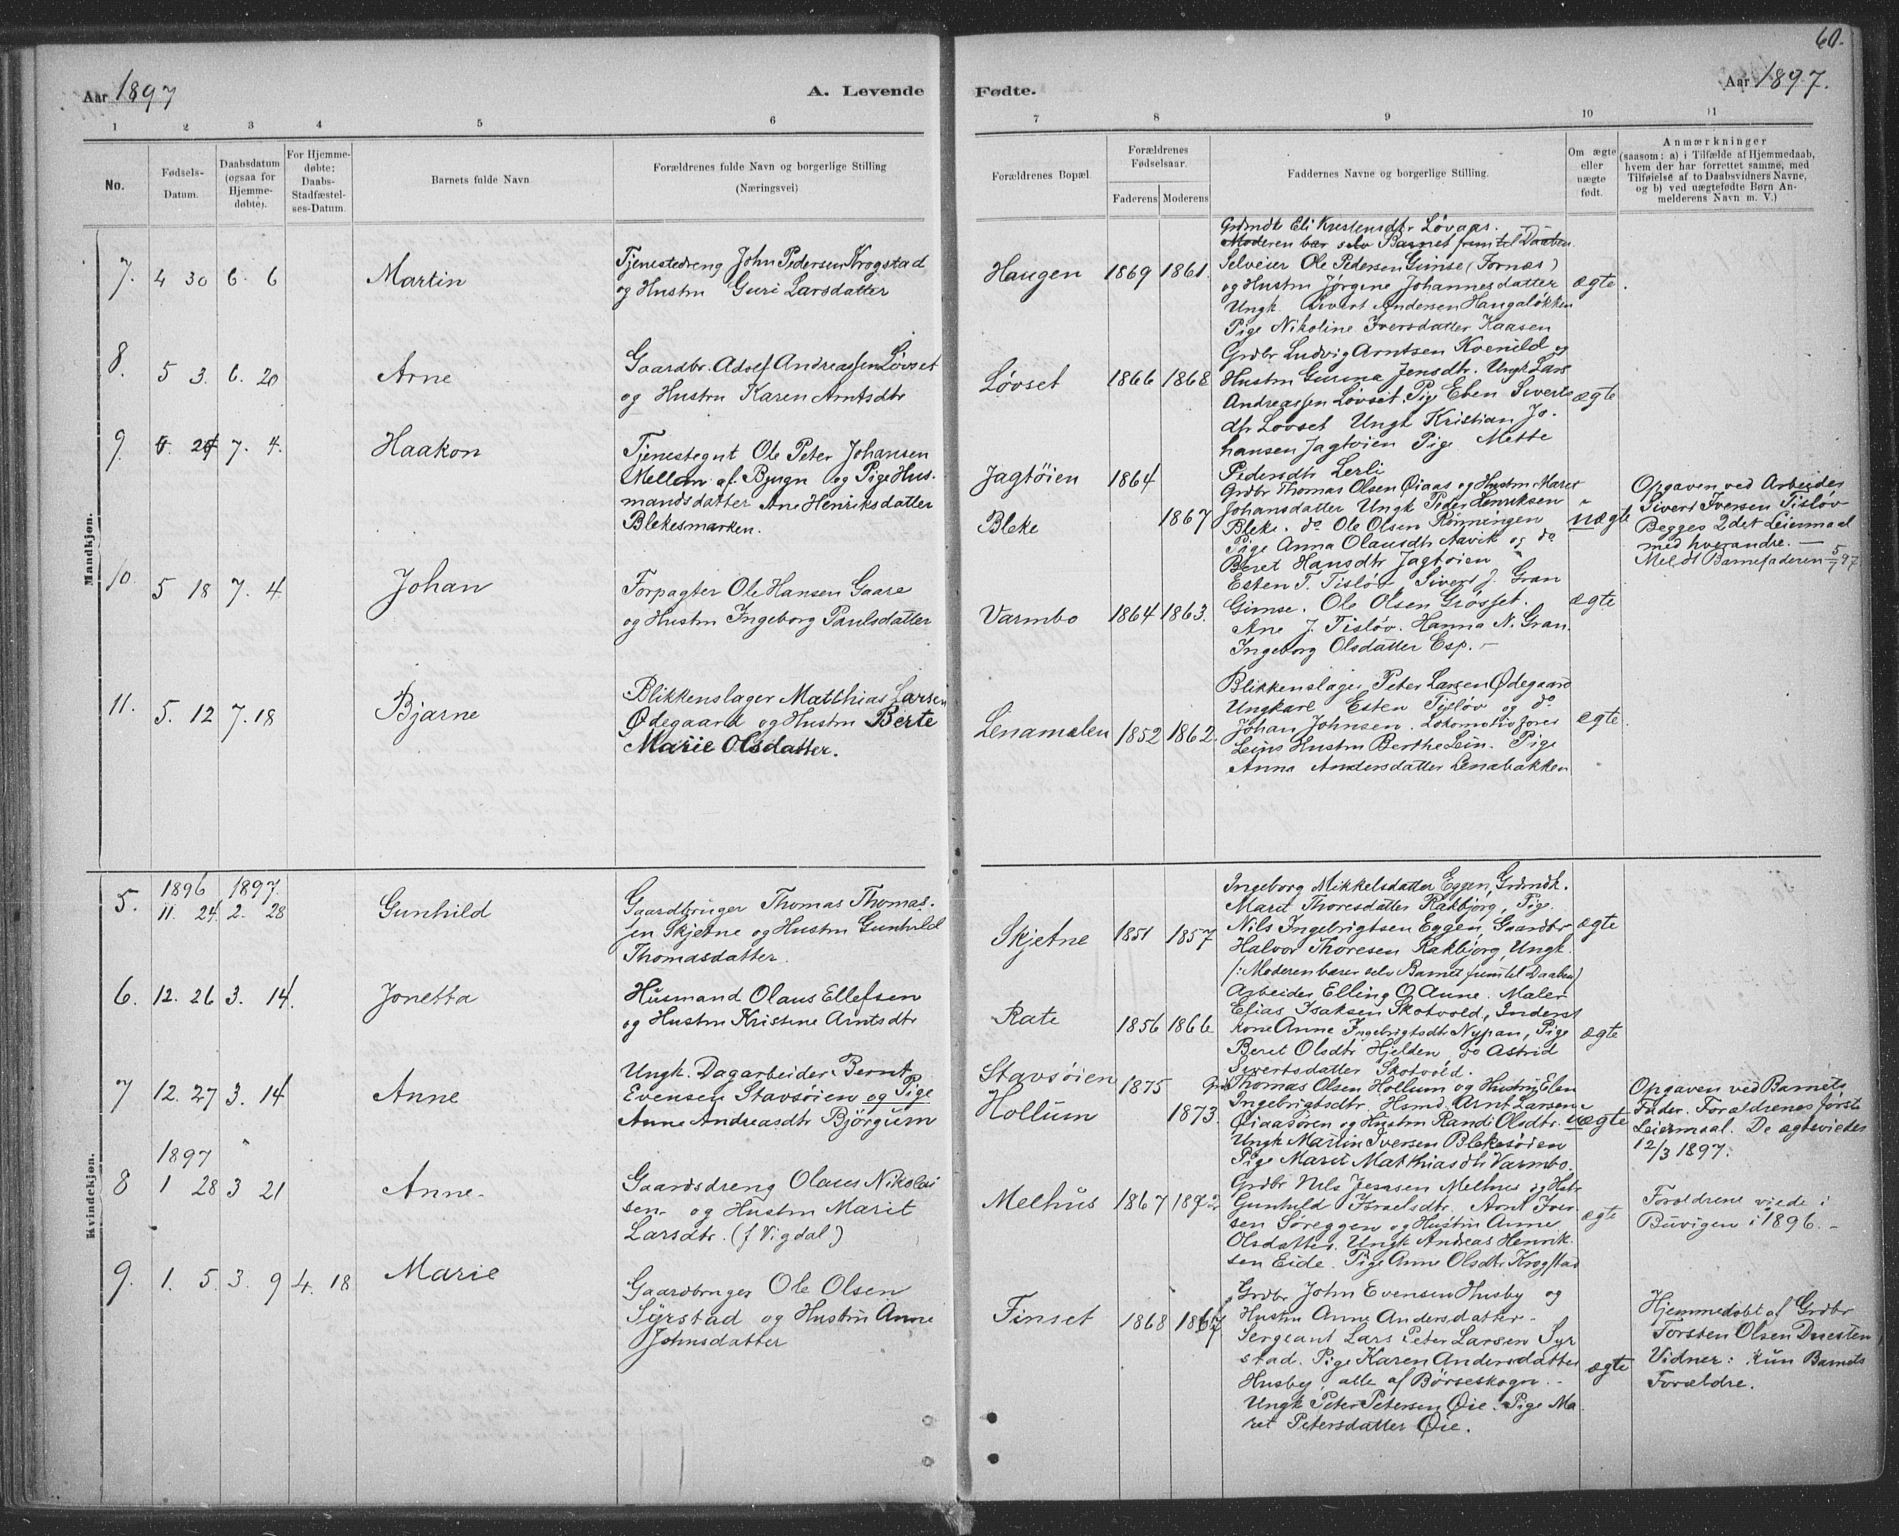 60.
Aar 1897
A. Levende
Fødte.
Aar 1897.
1 2 3 4 5 6
7 8 9 10 11
No.
Fødsels-
Datum.
Daabsdatum
(ogsaa for
Hjemme-
døbte).
For Hjemme-
døbte:
Daabs-
Stadfæstel-
ses-Datum.
Barnets fulde Navn
Forældrenes fulde Navn og borgerlige Stilling
(Næringsvei)
Forældrenes Bopæl.
Forældrenes
Fødselsaar.
Faderens Moderens
Faddernes Navne og borgerlige Stilling.
Om ægte
eller
uægte
født.
Anmærkninger
(saasom: a) i Tilfælde af Hjemmedaab,
hvem der har forrettet samme, med
Tilføielse af to Daabsvidners Navne,
og b) ved uægtefødte Børn An-
melderens Navn m. V.)
Mandkjøn.
7. 4 30 6. 6
Martin
Tjenestedreng John Pedersen Krogstad
og Hustru Guri Larsdatter
Haugen 1869 1861.
Grdmdt Eli Krestensdtr Løvaas.
Moderen bar selv Barnet frem til Daaben
Selveier Ole Pedersen Gimse (Fornæs)
og Hustru Jørgine Johannesdatter
Ungk. Sivert Andersen Haugaløkken
Pige Nikoline Iversdatter Kaasen
ægte.
8. 5 3. 6. 20
Arne
Gaardbr. Adolf Andreassen Løvset
og Hustru Karen Arntsdtr
Løvset 1866 1868
Grdbr Ludvig Arntsen Kvenild og
Hustru Gurina Jensdtr. Ungk Lars
Andreassen Løvset. Pige Eben Siverts
dtr Løvset Ungk Kristian Jo-
hansen Jagtøien Pige Mette
Pedersdtr Lerli
ægte
9 7. 4.
Haakon
Tjenestegut Ole Peter Johansen
Mellem af Bjugn og Pige Hus-
mandsdatter Ane Henriksdatter
Blekesmarken.
Jagtøien 1864
Bleke 1867
Grdbr Thomas Olsen Øiaas og Hustru Maret
Johansdatter Ungk Peder Henriksen
Bleke. do Ole Olsen Rønningen
Pige Anna Olausdtr Aavik og do
Beret Hansdtr Jagtøien
uægte
Opgaven ved Arbeider
Sivert Iversen Tisløv
Begges 2det Leiermaal
med hverandre. —
Meldt Barnefaderen 5/7 97
10. 5 18 7. 4.
Johan
Forpagter Ole Hansen Gaare
og Hustru Ingeborg Paulsdatter
Varmbo 1864 1863.
Esten T. Tisløv, Sivert J. Gran
Gimse. Ole Olsen Grøsset.
Ane J. Tisløv. Hanna N. Gran.
Ingeborg Olsdatter Esp. —
ægte
11. 5. 12 7. 18
Bjarne
Blikkenslager Matthias Larsen
Ødegaard og Hustru Berte
Marie Olsdatter.
Lenamælen 1852 1862.
Blikkenslager Peter Larsen Ødegaard
Ungkarl Esten Tisløv og do
Johan Johnsen. Lokomotivfører
Leins Hustru Berthe Lein. Pige
Anna Andersdatter Lenabakken
ægte.
Kvindekjøn.
5. 1896 1897.
11. 24. 2. 28
Gunhild
Gaardbruger Thomas Thomas-
sen Skjetne og Hustru Gunhild
Thomasdatter.
Skjetne 1851 1857
Ingeborg Mikkelsdatter Eggen, Grdmdk.
Marit Thoresdatter Rakbjørg, Pige.
Nils Ingebrigtsen Eggen, Gaardbr
Halvor Thoresen Rakbjørg, Ungk.
(: Moderen bærer selv Barnet frem til Daaben)
ægte
6. 12. 26 3. 14.
Jonetta
Husmand Olaus Ellefsen
og Hustru Kristine Arntsdtr
Rate 1856 1866
Arbeider Elling O Aune. Maler
Elias Isaksen Skotvold, Inderst
kone Anne Ingebrigtsdtr Nypan, Pige
Beret Olsdtr Hjelden, do Astrid
Sivertsdatter Skotvold.
ægte
7 12. 27 3. 14
Anne
Ungk. Dagarbeider Bernt
Evensen Stavsøien og Pige
Anne Andreasdtr Bjørgum
Stavsøien 1875
Hollum 1873.
Thomas Olsen Hollum og Hustru Elen
Ingebrigtsdtr. Hsmd. Arnt Larsen
Øiaasøren og Hustru Randi Olsdtr.
Ungk Martin Iversen Blekesøien
Pige Marit Matthiasdtr Varmbo.
uægte
Opgaven ved Barnets
Fader. Forældrenes første
Leiermaal. De ægteviedes
12/3 1897.
8 1897
1 28 3 21
Anne.
Gaardsdreng Olaus Nikolai
sen og Hustru Marit
Larsdtr. (f Vigdal)
Melhus 1867
Grdbr Nils Jensen Melhus og Hstr
Gunhild Israelsdtr. Arnt Iver
sen Søreggen og Hustru Anne
Olsdatter. Ungk Andreas Henrik
sen Eide. Pige Anne Olsdtr Krogstad
ægte
Forældrene viede i
Buvigen i 1896. —
9. 1. 5. 3. 9 4. 18
Marie
Gaardbruger Ole Olsen
Syrstad og Hustru Anne
Johnsdatter
Finset 1868 1867
Grdbr John Evensen Husby og
Hustru Anne Andersdatter.
Sergeant Lars Peter Larsen Syr
stad. Pige Karen Andersdatter
Husby, alle af Børseskogn. —
Ungk Peter Petersen Øie. Pige Ma-
ret Petersdatter Øie.
ægte
Hjemmedøbt af Grdbr
Torsten Olsen Duesten,
Vidner: kun Barnets
Forældre.